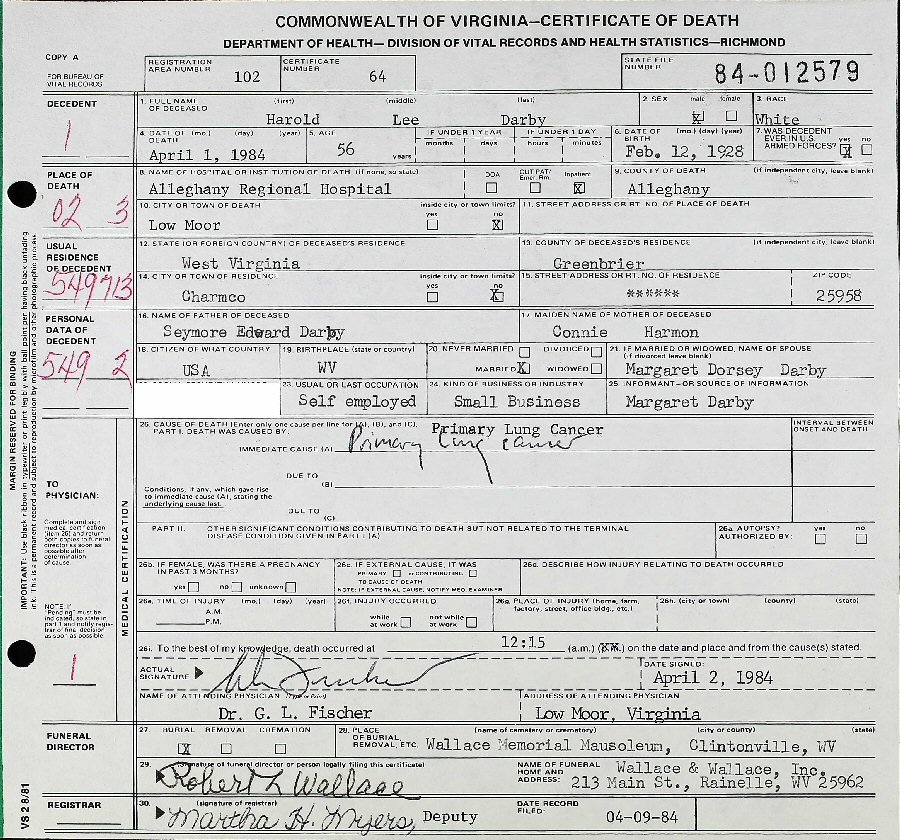 COMMONWEALTH OF VIRGINIA—CERTIFICATE OF DEATH
DEPARTMENT OF HEALTH—DIVISION OF VITAL RECORDS AND HEALTH STATISTICS—RICHMOND
COPY A
FOR BUREAU OF VITAL RECORDS
REGISTRATION AREA NUMBER 102
CERTIFICATE NUMBER 64
STATE FILE NUMBER 84-012579
DECEDENT
1
1. FULL NAME OF DECEASED (first) (middle) (last)
Harold Lee Darby
2. SEX male female
X
3. RACE
White
4. DATE OF DEATH (mo.) (day) (year)
April 1, 1984
5. AGE
56 years
IF UNDER 1 YEAR months days
IF UNDER 1 DAY hours minutes
6. DATE OF BIRTH (mo.) (day) (year)
Feb. 12, 1928
7. WAS DECEDENT EVER IN U.S. ARMED FORCES? yes no
X
PLACE OF DEATH
02 3
8. NAME OF HOSPITAL OR INSTITUTION OF DEATH (if none, so state)
Alleghany Regional Hospital
DOA OUT PAT/ Emer. Rm. Inpatient
X
9. COUNTY OF DEATH (if independent city, leave blank)
Alleghany
10. CITY OR TOWN OF DEATH inside city or town limits? yes no
Low Moor X
11. STREET ADDRESS OR RT. NO. OF PLACE OF DEATH
USUAL RESIDENCE OF DECEDENT
549713
12. STATE (OR FOREIGN COUNTRY) OF DECEASED'S RESIDENCE
West Virginia
13. COUNTY OF DECEASED'S RESIDENCE (if independent city, leave blank)
Greenbrier
14. CITY OR TOWN OF RESIDENCE inside city or town limits? yes no
Charmco X
15. STREET ADDRESS OR RT. NO. OF RESIDENCE
******
ZIP CODE
25958
PERSONAL DATA OF DECEDENT
549 2
16. NAME OF FATHER OF DECEASED
Seymore Edward Darby
17. MAIDEN NAME OF MOTHER OF DECEASED
Connie Harmon
18. CITIZEN OF WHAT COUNTRY
USA
19. BIRTHPLACE (state or country)
WV
20. NEVER MARRIED DIVORCED
MARRIED X WIDOWED
21. IF MARRIED OR WIDOWED, NAME OF SPOUSE (if divorced leave blank)
Margaret Dorsey Darby
23. USUAL OR LAST OCCUPATION
Self employed
24. KIND OF BUSINESS OR INDUSTRY
Small Business
25. INFORMANT—OR SOURCE OF INFORMATION
Margaret Darby
MARGIN RESERVED FOR BINDING
IMPORTANT: Use black ribbon in typewriter or print legibly with ball point pen having black unfading
ink. This is a permanent record and subject to reproduction by microfilm and other photographic process.
TO PHYSICIAN:
Complete and sign medical certification (item 26) and return both copies to funeral director as soon as possible after determination of cause.
NOTE: If "Pending" must be indicated, so state in part 1 and notify registrar of final decision as soon as possible.
1
MEDICAL CERTIFICATION
26. CAUSE OF DEATH (Enter only one cause per line for (A), (B), and (C).
PART I. DEATH WAS CAUSED BY:
INTERVAL BETWEEN ONSET AND DEATH
Primary Lung Cancer
IMMEDIATE CAUSE (A) Primary lung cancer
DUE TO
(B)
Conditions, if any, which gave rise to immediate cause (A), stating the underlying cause last.
DUE TO
(C)
PART II. OTHER SIGNIFICANT CONDITIONS CONTRIBUTING TO DEATH BUT NOT RELATED TO THE TERMINAL DISEASE CONDITION GIVEN IN PART I (A)
26a. AUTOPSY? AUTHORIZED BY: yes no
26b. IF FEMALE, WAS THERE A PREGNANCY IN PAST 3 MONTHS?
yes no unknown
26c. IF EXTERNAL CAUSE, IT WAS
PRIMARY or CONTRIBUTING
TO CAUSE OF DEATH
NOTE: IF EXTERNAL CAUSE, NOTIFY MED. EXAMINER
26d. DESCRIBE HOW INJURY RELATING TO DEATH OCCURRED
26e. TIME OF INJURY (mo.) (day) (year)
A.M.
P.M.
26f. INJURY OCCURRED
while at work not while at work
26g. PLACE OF INJURY (home, farm, factory, street, office bldg., etc.)
26h. (city or town) (county) (state)
26i. To the best of my knowledge, death occurred at 12:15 (a.m.) (XX) on the date and place and from the cause(s) stated.
ACTUAL SIGNATURE
DATE SIGNED:
April 2, 1984
NAME OF ATTENDING PHYSICIAN (Type or Print)
Dr. G. L. Fischer
ADDRESS OF ATTENDING PHYSICIAN
Low Moor, Virginia
FUNERAL DIRECTOR
27. BURIAL REMOVAL CREMATION
X
28. PLACE OF BURIAL, REMOVAL, ETC. (name of cemetery or crematory) (city or county) (state)
Wallace Memorial Mausoleum, Clintonville, WV
29. (signature of funeral director or person legally filing this certificate)
Robert L Wallace
NAME OF FUNERAL HOME AND ADDRESS:
Wallace & Wallace, Inc.
213 Main St., Rainelle, WV 25962
REGISTRAR
30. (signature of registrar)
Martha H. Myers, Deputy
DATE RECORD FILED:
04-09-84
VS 2 8/81